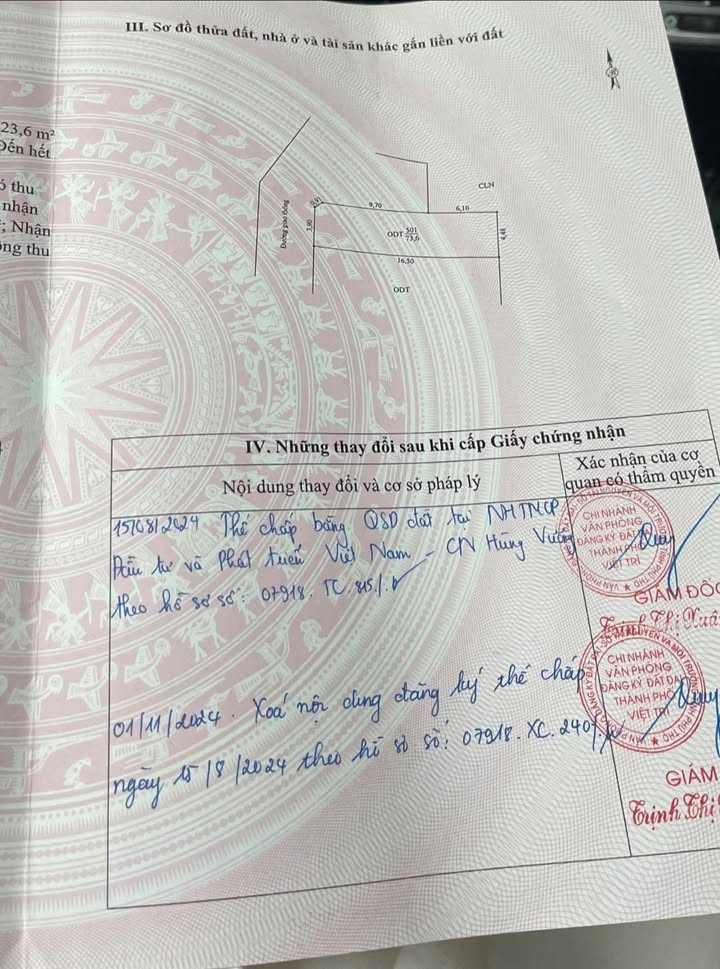 III. Sơ đồ thửa đất, nhà ở và tài sản khác gắn liền với đất
23,6 m²
Đến hết
ó thu
nhận
; Nhận
ông thu
Đường giao thông
0,91
3,90
9,70
CLN
6,10
ODT 501
73,6
4,48
16,50
ODT
IV. Những thay đổi sau khi cấp Giấy chứng nhận
Nội dung thay đổi và cơ sở pháp lý
Xác nhận của cơ
quan có thẩm quyền
15/08/2024 Thế chấp bằng QSD đất tại NHTMCP
Đầu tư và Phát triển Việt Nam - CN Hùng Vương
theo hồ sơ số: 07918.TC.815./.
CHI NHÁNH
VĂN PHÒNG
ĐĂNG KÝ ĐẤT ĐAI
THÀNH PHỐ
VIỆT TRÌ
GIÁM ĐỐC
Thị Xuâ
01/11/2024. Xoá nội dung đăng ký thế chấp
ngày 15/8/2024 theo hồ sơ số: 07918.XC.240
CHI NHÁNH
VĂN PHÒNG
ĐĂNG KÝ ĐẤT ĐAI
THÀNH PHỐ
VIỆT TRÌ
GIÁM
Trịnh Thị